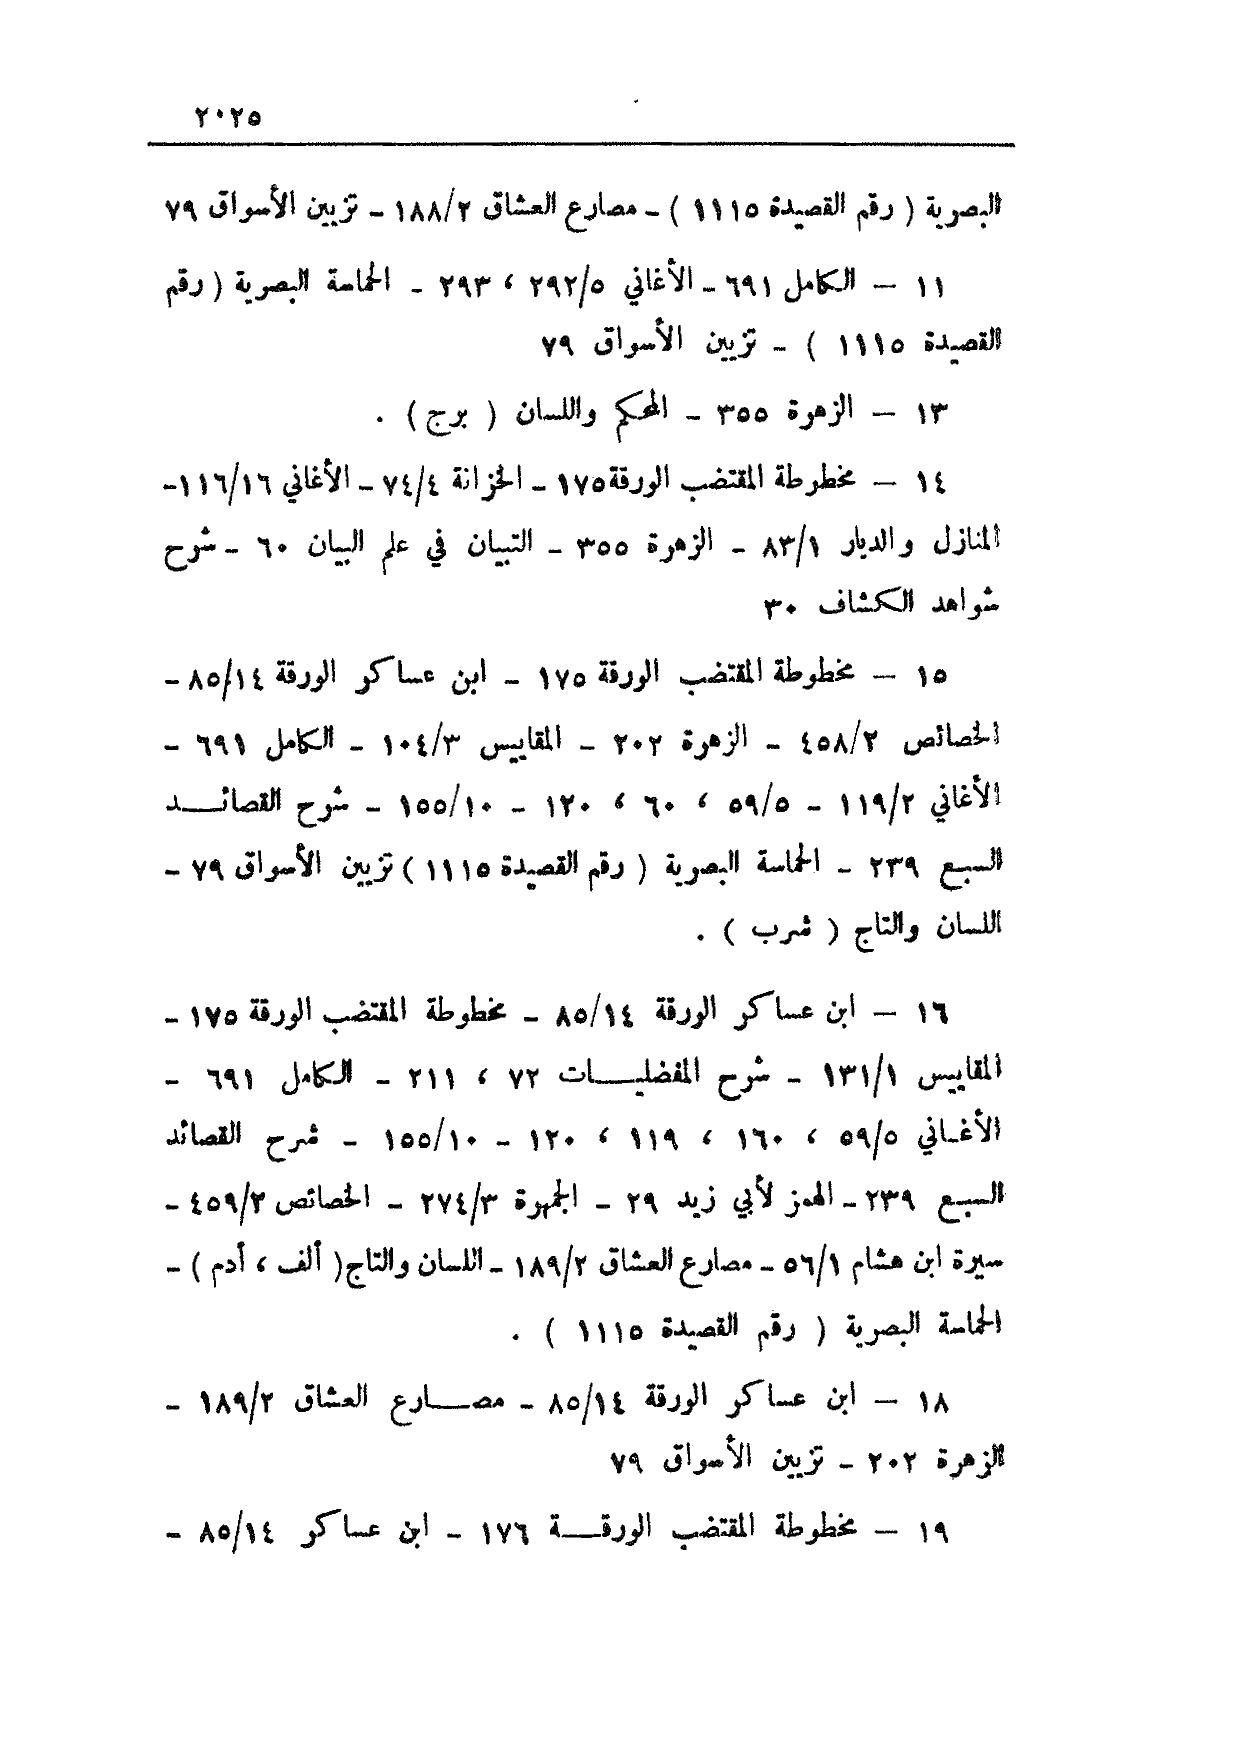 ٢٠٢٥
البصرية ( رقم القصيدة ١١١٥ ) ـ مصارع العشاق ١٨٨/٢ ـ تزيين الأسواق ٧٩
١١ — الكامل ٦٩١ ـ الأغاني ٢٩٢/٥ ، ٢٩٣ ـ الحماسة البصرية ( رقم
القصيدة ١١١٥ ) ـ تزيين الأسواق ٧٩
١٣ — الزهرة ٣٥٥ ـ المحكم واللسان ( برج ) .
١٤ — مخطوطة المقتضب الورقة ١٧٥ ـ الخزانة ٧٤/٤ ـ الأغاني ١١٦/١٦ـ
المنازل والديار ٨٣/١ ـ الزهرة ٣٥٥ ـ التبيان في علم البيان ٦٠ ـ شرح
شواهد الكشاف ٣٠
١٥ — مخطوطة المقتضب الورقة ١٧٥ ـ ابن عساكر الورقة ٨٥/١٤ ـ
الخصائص ٤٥٨/٢ ـ الزهرة ٢٠٢ ـ المقاييس ١٠٤/٣ ـ الكامل ٦٩١ ـ
الأغاني ١١٩/٢ ـ ٥٩/٥ ، ٦٠ ، ١٢٠ ـ ١٥٥/١٠ ـ شرح القصائـــد
السبع ٢٣٩ ـ الحماسة البصرية ( رقم القصيدة ١١١٥ ) تزيين الأسواق ٧٩ ـ
اللسان والتاج ( شرب ) .
١٦ — ابن عساكر الورقة ٨٥/١٤ ـ مخطوطة المقتضب الورقة ١٧٥ ـ
المقاييس ١٣١/١ ـ شرح المفضليـــات ٧٢ ، ٢١١ ـ الكامل ٦٩١ ـ
الأغـاني ٥٩/٥ ، ١٦٠ ، ١١٩ ، ١٢٠ ـ ١٥٥/١٠ ـ شرح القصائد
السبع ٢٣٩ ـ الهمز لأبي زيد ٢٩ ـ الجمهرة ٢٧٤/٣ ـ الخصائص ٤٥٩/٢ ـ
سيرة ابن هشام ٥٦/١ ـ مصارع العشاق ١٨٩/٢ ـ اللسان والتاج ( ألف ، أدم ) ـ
الحماسة البصرية ( رقم القصيدة ١١١٥ ) .
١٨ — ابن عساكر الورقة ٨٥/١٤ ـ مصـــارع العشاق ١٨٩/٢ ـ
الزهرة ٢٠٢ ـ تزيين الأسواق ٧٩
١٩ — مخطوطة المقتضب الورقـــة ١٧٦ ـ ابن عساكر ٨٥/١٤ ـ